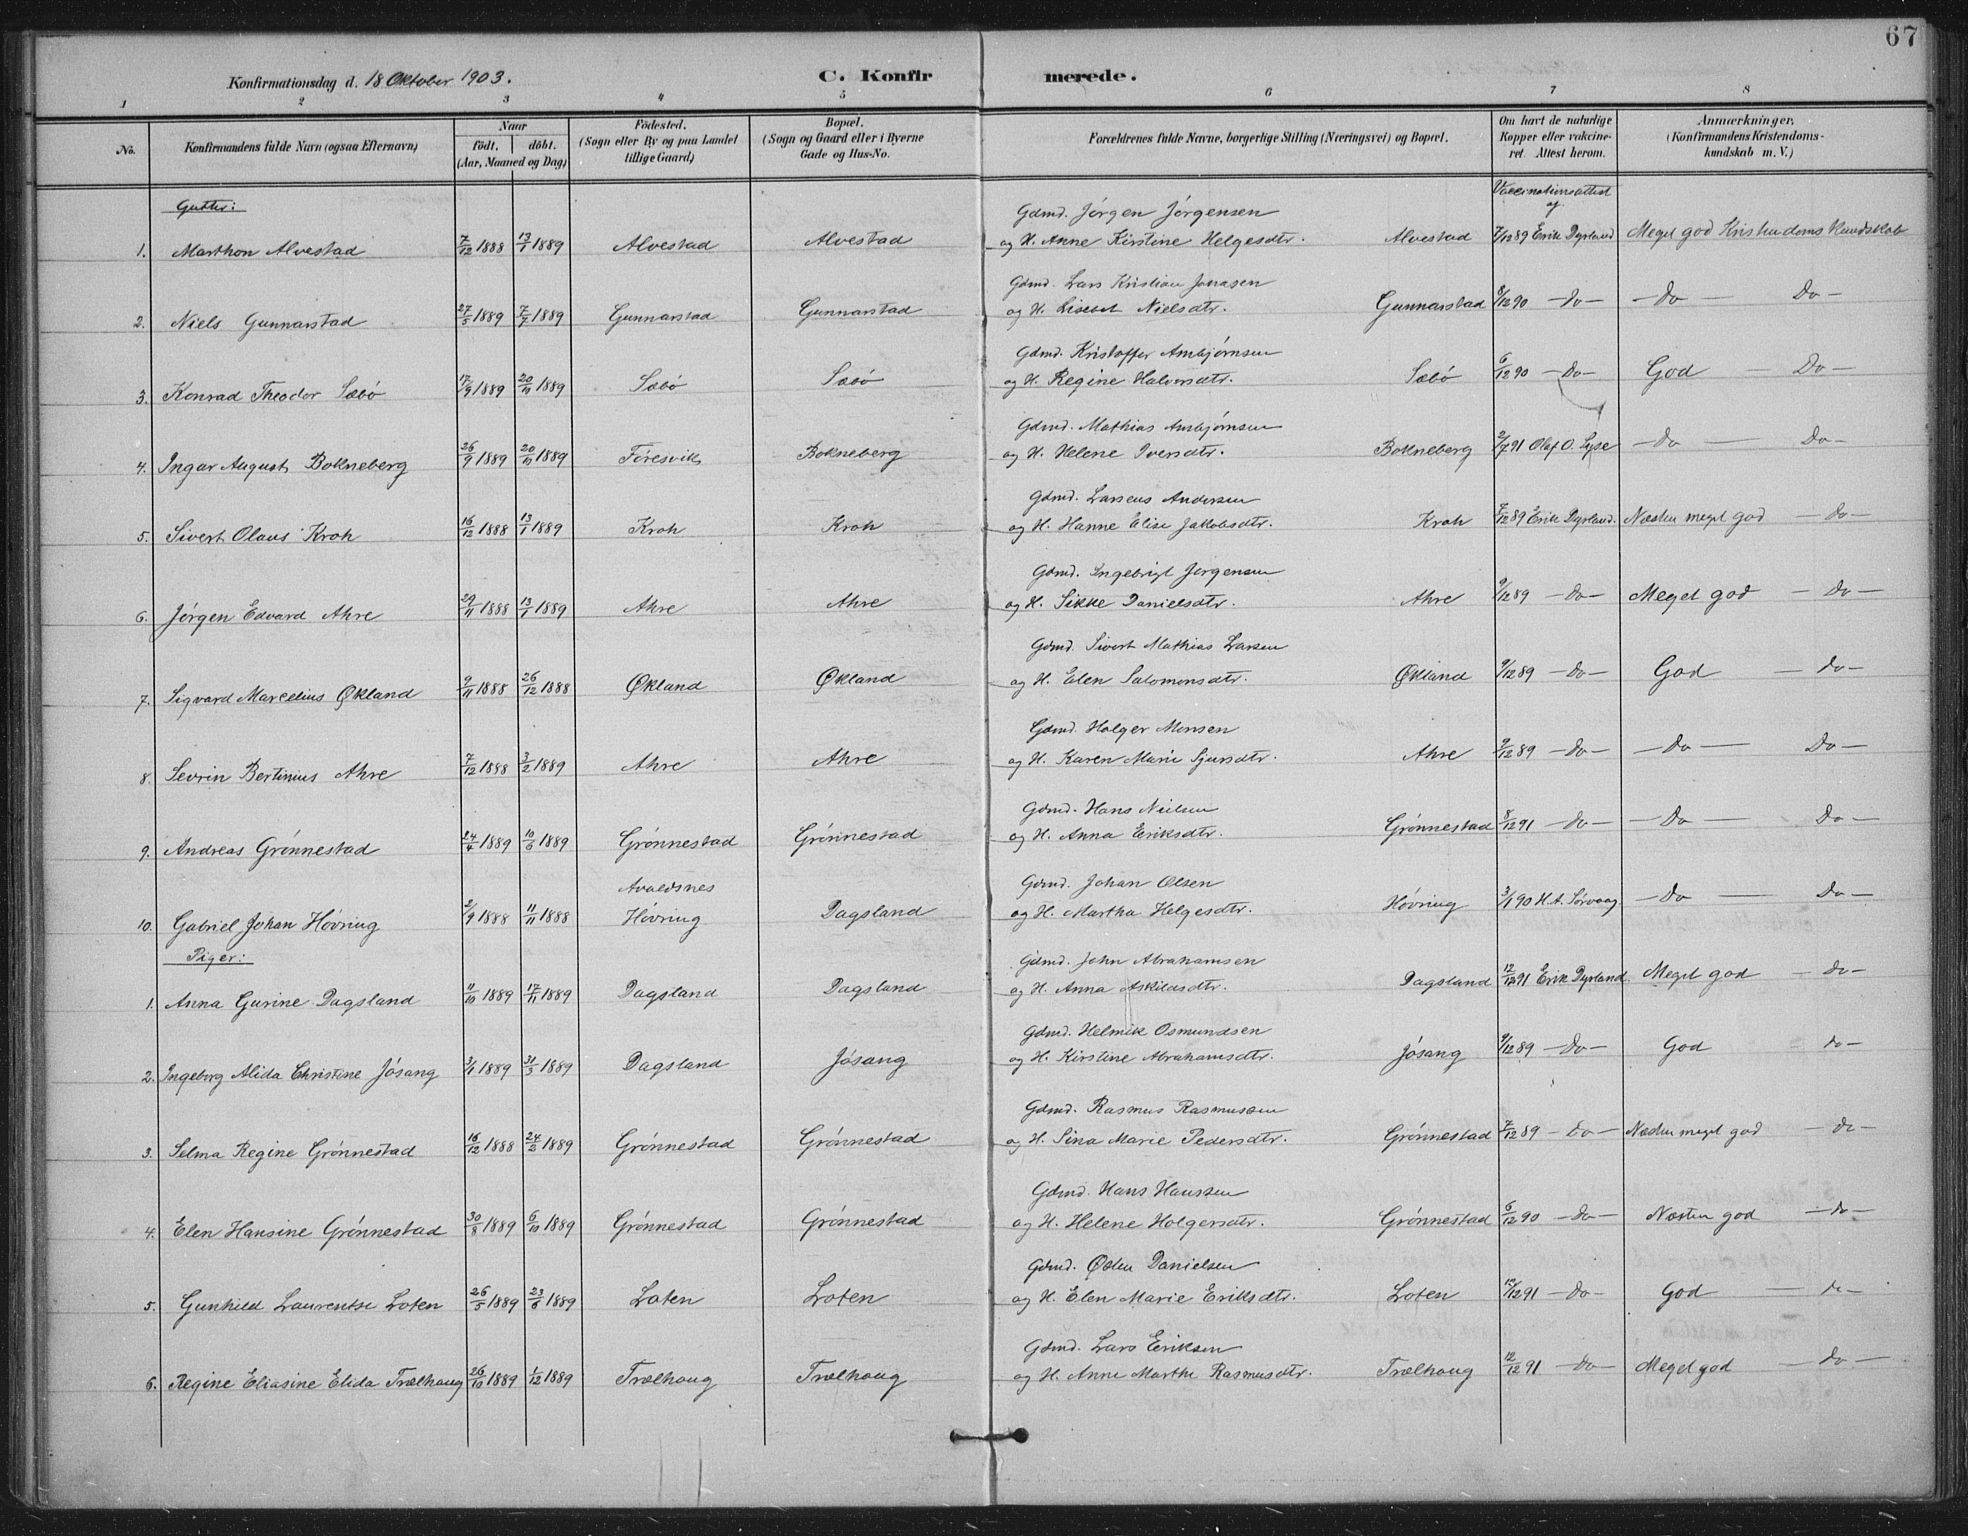 67
Konfirmationsdag d. 18 Oktober 1903. C. Konfirmerede.
1 2 3 4 5 6 7 8
No. Konfirmandens fulde Navn (ogsaa Efternavn) Naar födt. döbt. (Aar, Maaned og Dag) Födested. (Sogn eller By og paa Landet tillige Gaard) Bopæl. (Sogn og Gaard eller i Byerne Gade og Hus-No. Forældrenes fulde Navne, borgerlige Stilling (Næringsvei) og Bopæl. Om havt de naturlige Kopper eller vakcineret. Attest herom. Anmærkninger. (Konfirmandens Kristendomskundskab m. V.)
Gutter: Vaccinationsattest af
Gdmd. Jørgen Jørgensen
1. Marthon Alvestad 7/12 1888 13/1 1889 Alvestad Alvestad og H. Anne Kirstine Helgesdtr. Alvestad 7/12 89 Erik Dyrland Meget god Kristendoms Kundskab
Gdmd. Lars Kristian Jonasen
2. Niels Gunnarstad 27/5 1889 7/7 1889 Gunnarstad Gunnarstad og H. Lisebet Nielsdtr. Gunnarstad 8/12 90 - Do - - Do - Do -
Gdmd. Kristoffer Ambjørnsen
3. Konrad Theodor Sæbø 17/9 1889 20/10 1889 Sæbø Sæbø og H. Regine Halvorsdtr. Sæbø 6/12 90 - Do - God - Do -
Gdmd. Mathias Ambjørnsen
4. Ingar August Bokneberg 26/9 1889 20/10 1889 Føresvik Bokneberg og H. Helene Iversdtr. Bokneberg 2/7 91 Olaf O. Lyse - Do - Do -
Gdmd. Larsens Andersen
5. Sivert Olaus Kroh 16/12 1888 13/1 1889 Kroh Kroh og H. Hanne Elise Jakobsdtr. Kroh 7/12 89 Erik Dyrland. Næsten meget god - do -
Gdmd. Ingebrigt Jørgensen
6. Jørgen Edvard Ahre 29/11 1888 13/1 1889 Ahre Ahre og H. Sikke Danielsdtr. Ahre 9/12 89 - Do - Meget god - Do -
Gdmd. Sivert Mathias Larsen
7. Sigvard Marcelius Økland 9/11 1888 26/12 1888 Økland Økland og H. Elen Salomonsdtr. Økland 9/12 89 - Do - God - do -
Gdmd. Holger Monsen
8. Sevrin Bertinius Ahre 7/12 1888 3/2 1889 Ahre Ahre og H. Karen Marie Sjursdtr. Ahre 9/12 89 - Do - - Do - Do -
Gdmd. Hans Nielsen
9. Andreas Grønnestad 24/4 1889 10/6 1889 Grønnestad Grønnestad og H. Anna Eriksdtr. Grønnestad 8/12 91 - Do - - Do - Do -
Avaldsnes Gdmd. Johan Olsen
10. Gabriel Johan Høvring 2/9 1888 11/11 1888 Høvring Dagsland og H. Martha Helgesdtr. Høvring 3/1 90 H. A. Sørvaag - Do - Do -
Piger: Gdmd. John Abrahamsen
1. Anna Gurine Dagsland 11/10 1889 17/11 1889 Dagsland Dagsland og H. Anna Askildsdtr. Dagsland 12/12 91 Erik Dyrland. Meget god - do -
Gdmd. Helmik Osmundsen
2. Ingeborg Alida Christine Jøsang 31/1 1889 31/3 1889 Dagsland Jøsang og H. Kirstine Abrahamsdtr. Jøsang 9/12 89 - Do - God do -
Gdmd. Rasmus Rasmussen
3. Selma Regine Grønnestad 16/12 1888 24/2 1889 Grønnestad Grønnestad og H. Sina Marie Pedersdtr. Grønnestad 7/12 89 - Do - Næsten meget god - do -
Gdmd. Hans Hanssen
4. Elen Hansine Grønnestad 30/8 1889 6/10 1889 Grønnestad Grønnestad og H. Helene Holgersdtr. Grønnestad 6/12 90 - Do - Næsten god - do -
Gdmd. Østen Danielsen
5. Gunhild Laurentse Loten 26/5 1889 23/6 1889 Loten Loten og H. Elen Marie Eriksdtr. Loten 12/12 91 - Do - God - do -
Gdmd. Lars Eriksen
6. Regine Eliasine Elida Trælhaug 26/10 1889 1/12 1889 Trælhaug Trælhaug og H. Anne Marthe Rasmusdtr. Trælhaug 12/12 91 - Do - Meget god - do -